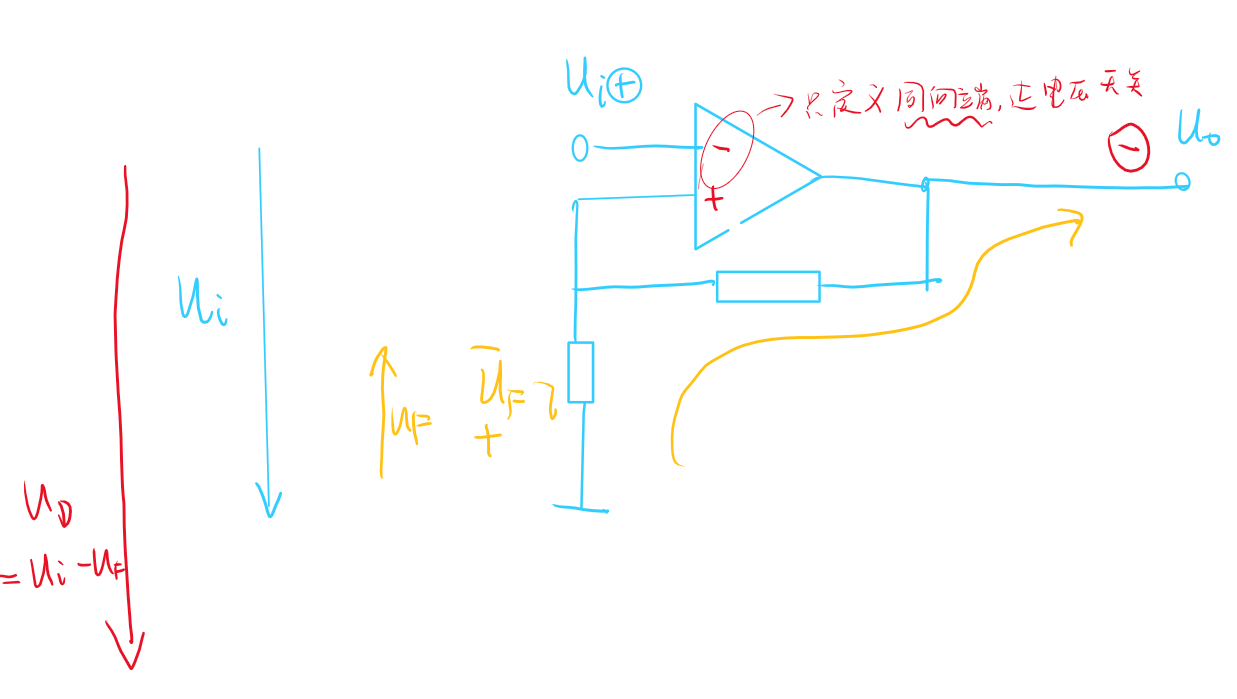 Ui⊕
→只定义同向端,与电压无关
-
+
⊖
Uo
Ui
UF
-
UF
+
UD
=Ui-UF